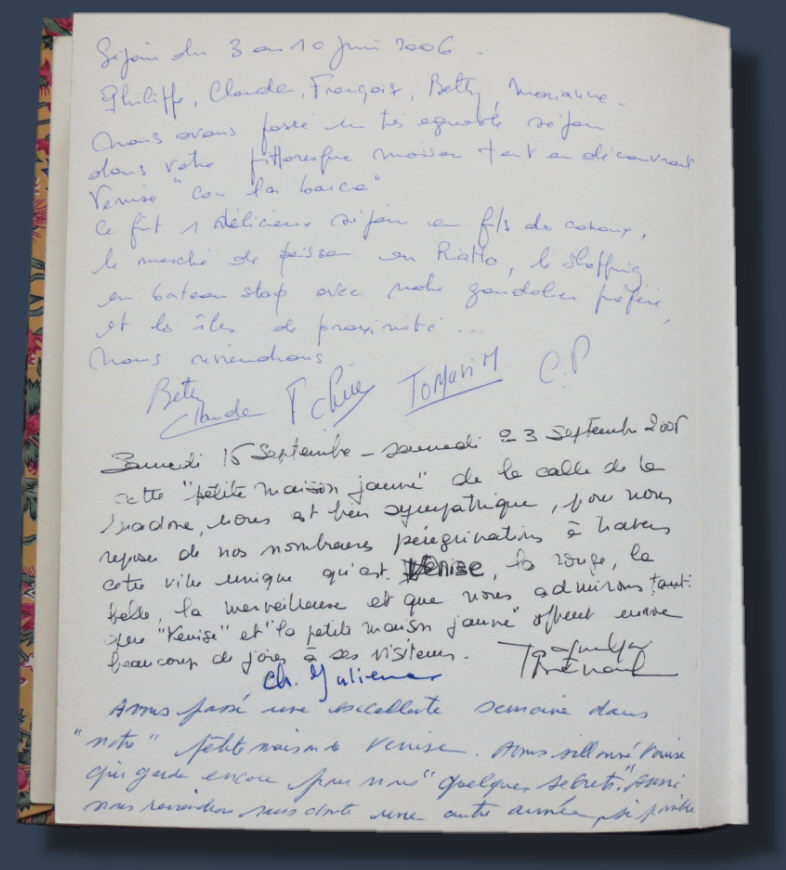 Séjour du 3 au 10 Juin 2006.
Philippe, Claude, Françoise, Betty, Marianne.
Nous avons passé un très agréable séjour
dans votre pittoresque maison tout en découvrant
Venise "con la barca"
Ce fût 1 délicieux séjour au fils des canaux,
le marché de poisson au Rialto, le shopping
en bateau stop avec notre gondolier préféré,
et les îles de proximité ...
Nous reviendrons
Betty
Claude TOMASI M C.P
Samedi 15 Septembre - samedi 23 Septembre
cette "petite maison jaune" de la calle de la
Madone, nous est bien sympathique, pour nous
reposer de nos nombreuses pérégrinations à travers
cette ville unique qu'est Venise, la rouge, la
belle, la merveilleuse et que nous admirons tant.
que "Venise" et "la petite maison jaune" offrent encore
beaucoup de joies à ses visiteurs.
Ch. Julienne
Avons passé une excellente semaine dans
"notre" petite maison de Venise. Avons sillonné Venise
qui garde encore pour nous "quelques secrets". Aussi
nous reviendrons sans doute une autre année, si possible